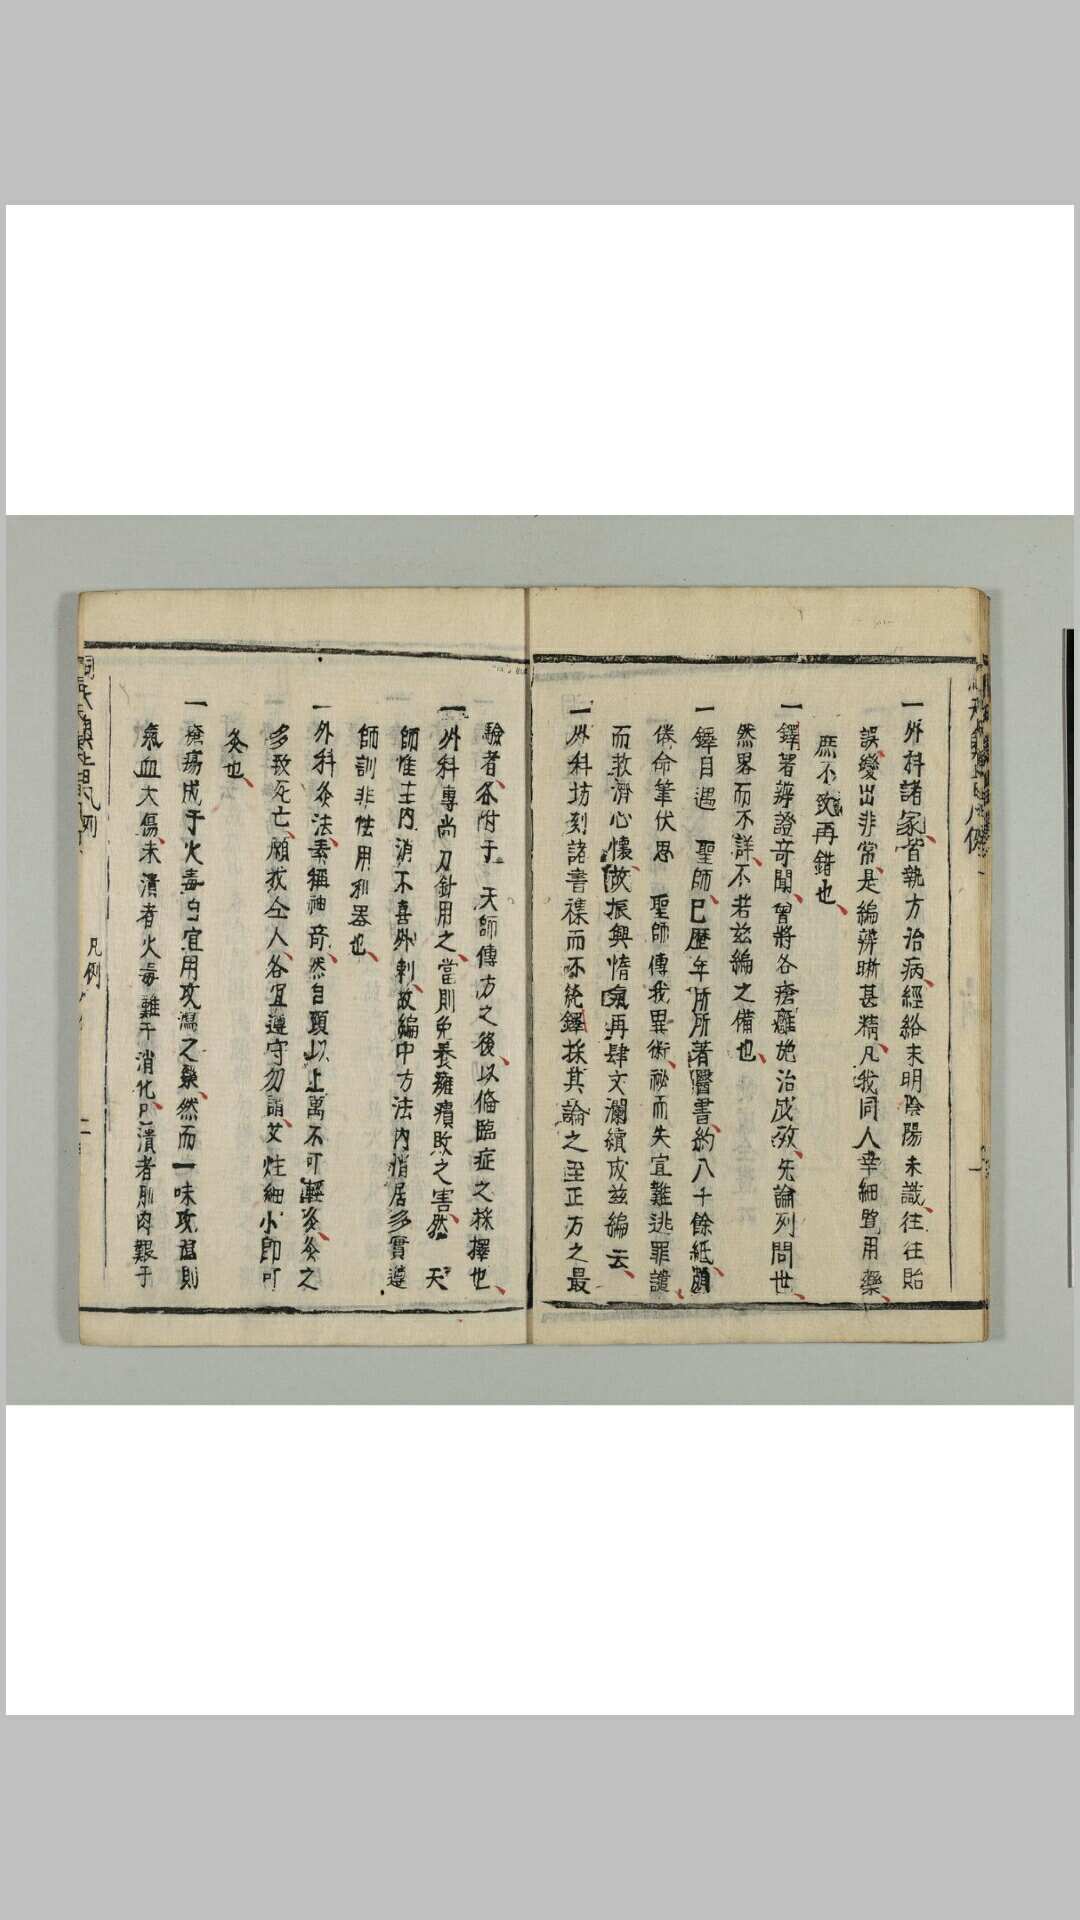 一外科諸家皆執方治病經絡未明陰陽未識往往貽
誤變出非常是編辨晰甚精凡我同人幸細覽用藥
庶不致再錯也
一鐸著辨證奇聞曾將各瘡瘍施治成效先論列問世
然畧而不詳不若兹編之備也
一鐸自遇 聖師已歷年所所著醫書約八千餘紙頗
命筆伏思 聖師傳我異術祕而失宜難逃罪譴
而救濟心懷故振興惰氣再肆文瀾續成兹編云
一外科坊刻諸書襍而不純鐸採其論之至正方之最
驗者各附于 天師傳方之後以俻臨症之採擇也
一外科專尚刀針用之當則免養癰潰敗之害然 天
師惟主内消不喜外刺故編中方法内消居多實遵
師訓非怯用利器也
一外科灸法素稱神奇然自頭以上萬不可輕灸灸之
多致死亡願我仝人各宜遵守勿謂艾炷細小即可
灸也
一瘡瘍成于火毒自宜用攻瀉之藥然而一味攻瀉則
氣血大傷未潰者火毒難于消化已潰者肌肉艱于
凡例
二